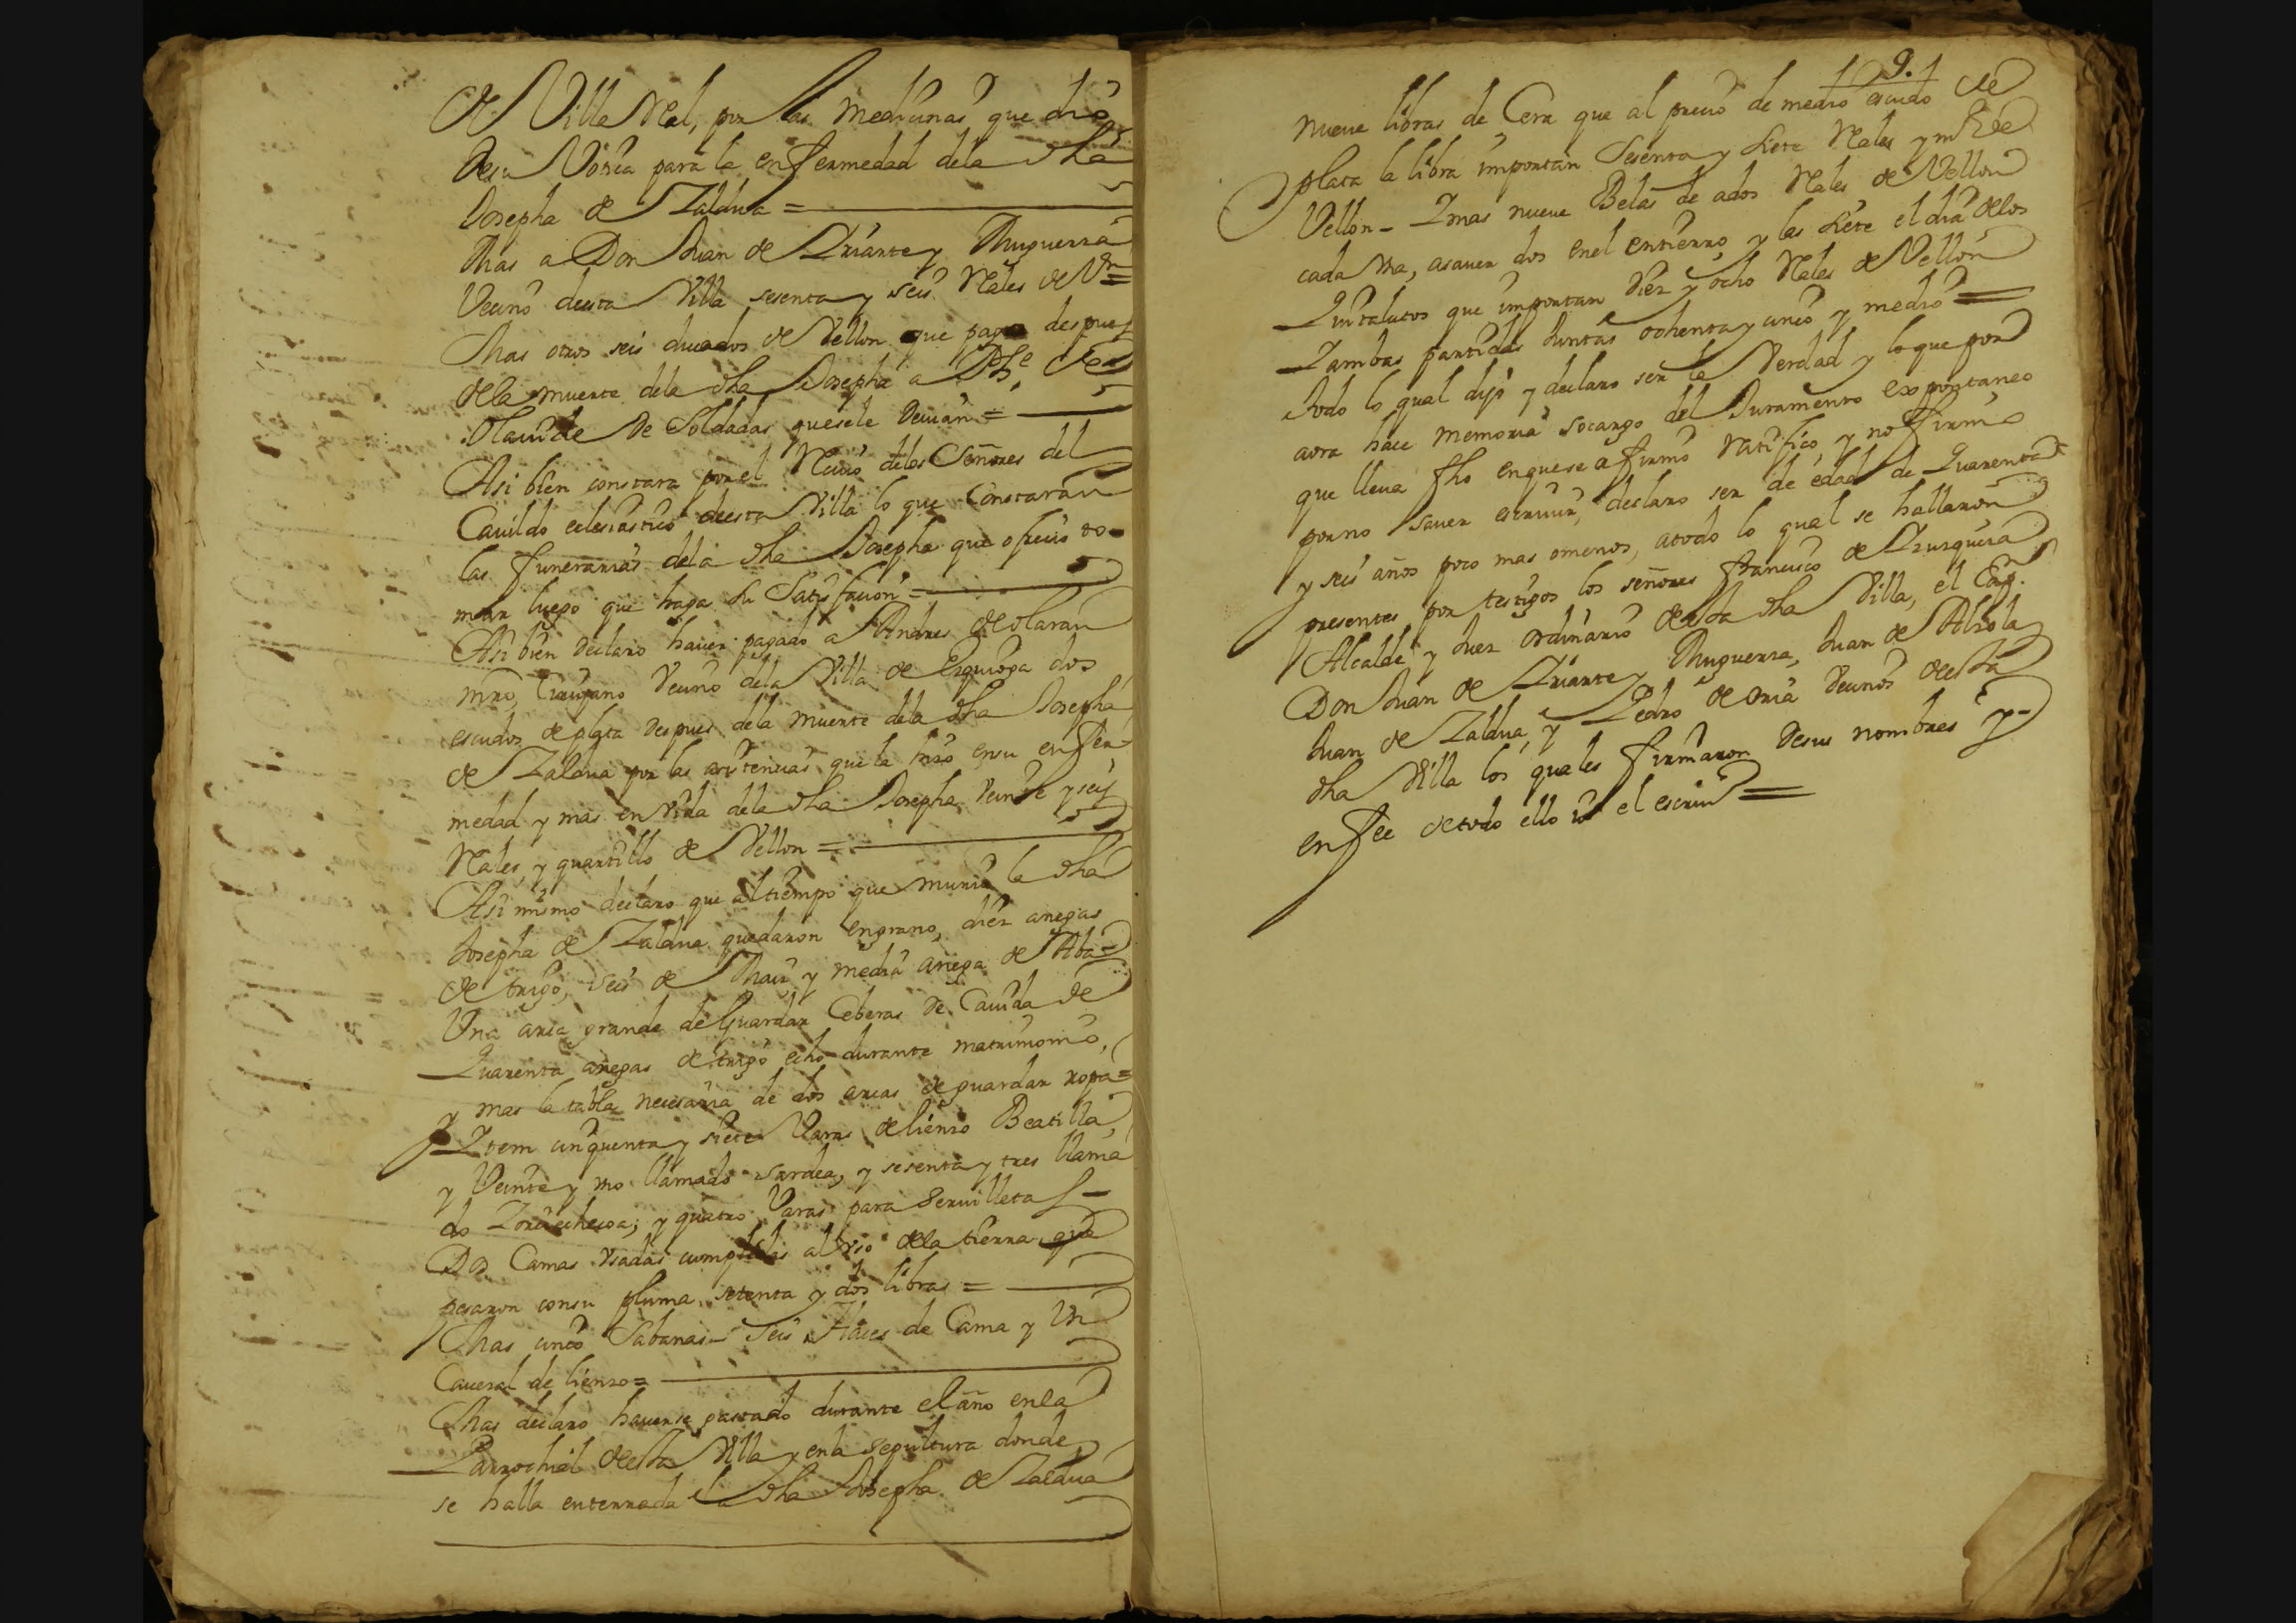 de Villa Real, por las medicinas que dio
de su Votica para la enfermedad dela dha
Josepha de Zaldua =
Mas a Don Juan de Yriarte y Muguerza
Vecino deesta Villa sesenta y seis Rales de Vn =
Mas otros seis ducados de Vellon que pago despues
dela muerte dela dha Josepha a de
Olauide de Soldadas quesele deuian =
Asi bien constara por el Reciuo delos Señores del
Cauildo eclesiastico deesta Villa lo que Constaran
las funerarias dela dha Josepha que ofrecio to-
mar luego que haga su Satisfacion =
Asi bien declaro hauer pagado a Andres de olaran
mro Cirujano Vecino dela Villa de Ezquioga dos
escudos de plata despues dela muerte dela dha Josepha
de Zaldua por las asistencias que la hizo ensu enfer
medad y mas en vida dela dha Josepha Veinte y seis
Rales, y quartillo de Vellon =
Asi mismo declaro que altiempo que murio la dha
Josepha de Zaldua quedaron engrano, diez anegas
de trigo, seis de Maiz y media anega de Aba =
Una arca grande de Guardar Ceberas de Cauida de
Quarenta anegas de trigo echo durante matrimonio,
y mas la tabla necesaria de dos arcas de guardar ropa =
Ytem cinquenta y siete Varas delienzo Beatilla,
y Veinte y vno llamado sardea, y sesenta y tres llama
do y quatro Varas para seruilletas -
Dos Camas vsadas cumplidas al vso dela tierra que
pesaron consu pluma setenta y dos libras =
Mas cinco Sabanas - Seis Haces de Cama y Vn
Caueral de lienzo =
Mas declaro hauerse gastado durante el año enla
Parrochial deesta Villa y enla sepultura donde
se halla enterrada la dha Josepha de Zaldua
9.
nueue libras de Cera que al precio de medio escudo de
plata la libra importan Sesenta y siete Rales y mo de
Vellon - Ymas nueue Belas de ados Rales de Vellon
cada vna, asauer dos enel entierro, y las siete el dia delos
Quitalutos que importan diez y ocho Rales de Vellon
Yambas partidas Juntas ochenta y cinco y medio =
todo lo qual dijo y declaro ser la Verdad y loque por
aora hace memoria socargo del Juramento expontaneo
que lleua fho enquese afirmo ratifico, y no firmo
porno sauer escriuir, declaro ser de edad de Quarenta
y seis años poco mas omenos, atodo lo qual se hallaron
presentes por testigos los señores francisco de
Alcalde y Juez ordinario deesta dha Villa, el Cap.n
Don Juan de Yriarte y Muguerza, Juan de Alzola,
Juan de Zaldua, y Pedro de oria Vecinos deesta
dha Villa los quales firmaron desus nombres y-
enfee detodo ello io el escriuo =